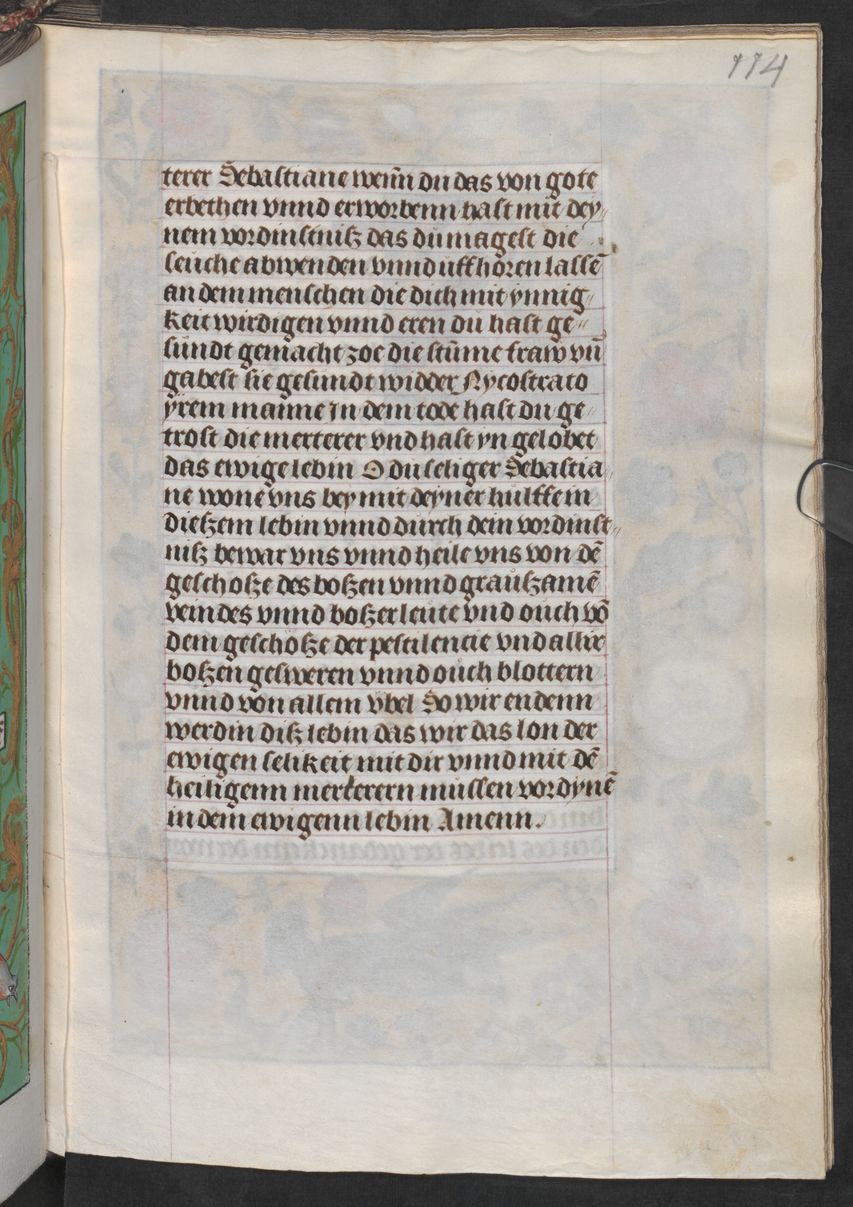 114
terer Sebastiane wen̄n du das von gote
erbethen vnnd erworbenn hast mit dey⸗
nem vordinstniß das du magest die
seuche abwenden vnnd uffhoren lassē
an dem menschen die dich mit ynnig⸗
keit wirdigen vnnd eren du hast ge⸗
sundt gemacht zoe die stūme fraw vn̄
gabest sie gesundt widder Nycostrato
yrem manne jn dem tode hast du ge⸗
trost die merterer vnd hast yn gelobet
das ewige lebin O du seliger Sebastia⸗
ne wone vns bey mit deyner hulffe in
dießem lebin vnnd durch dein vordinst⸗
niß bewar vns vnnd heile vns von dē
geschoße des boßen vnnd graußamē
veindes vnnd boßer leute vnd ouch vō
dem geschoße der pestilencie vnd allir
boßen gesweren vnnd ouch blottern
vnnd von allem vbel So wir endenn
werdin diß lebin das wir das lon der
ewigen selikeit mit dir vnnd mit dē
heiligenn merterern mussen vordynē
in dem ewigenn lebin Amenn.